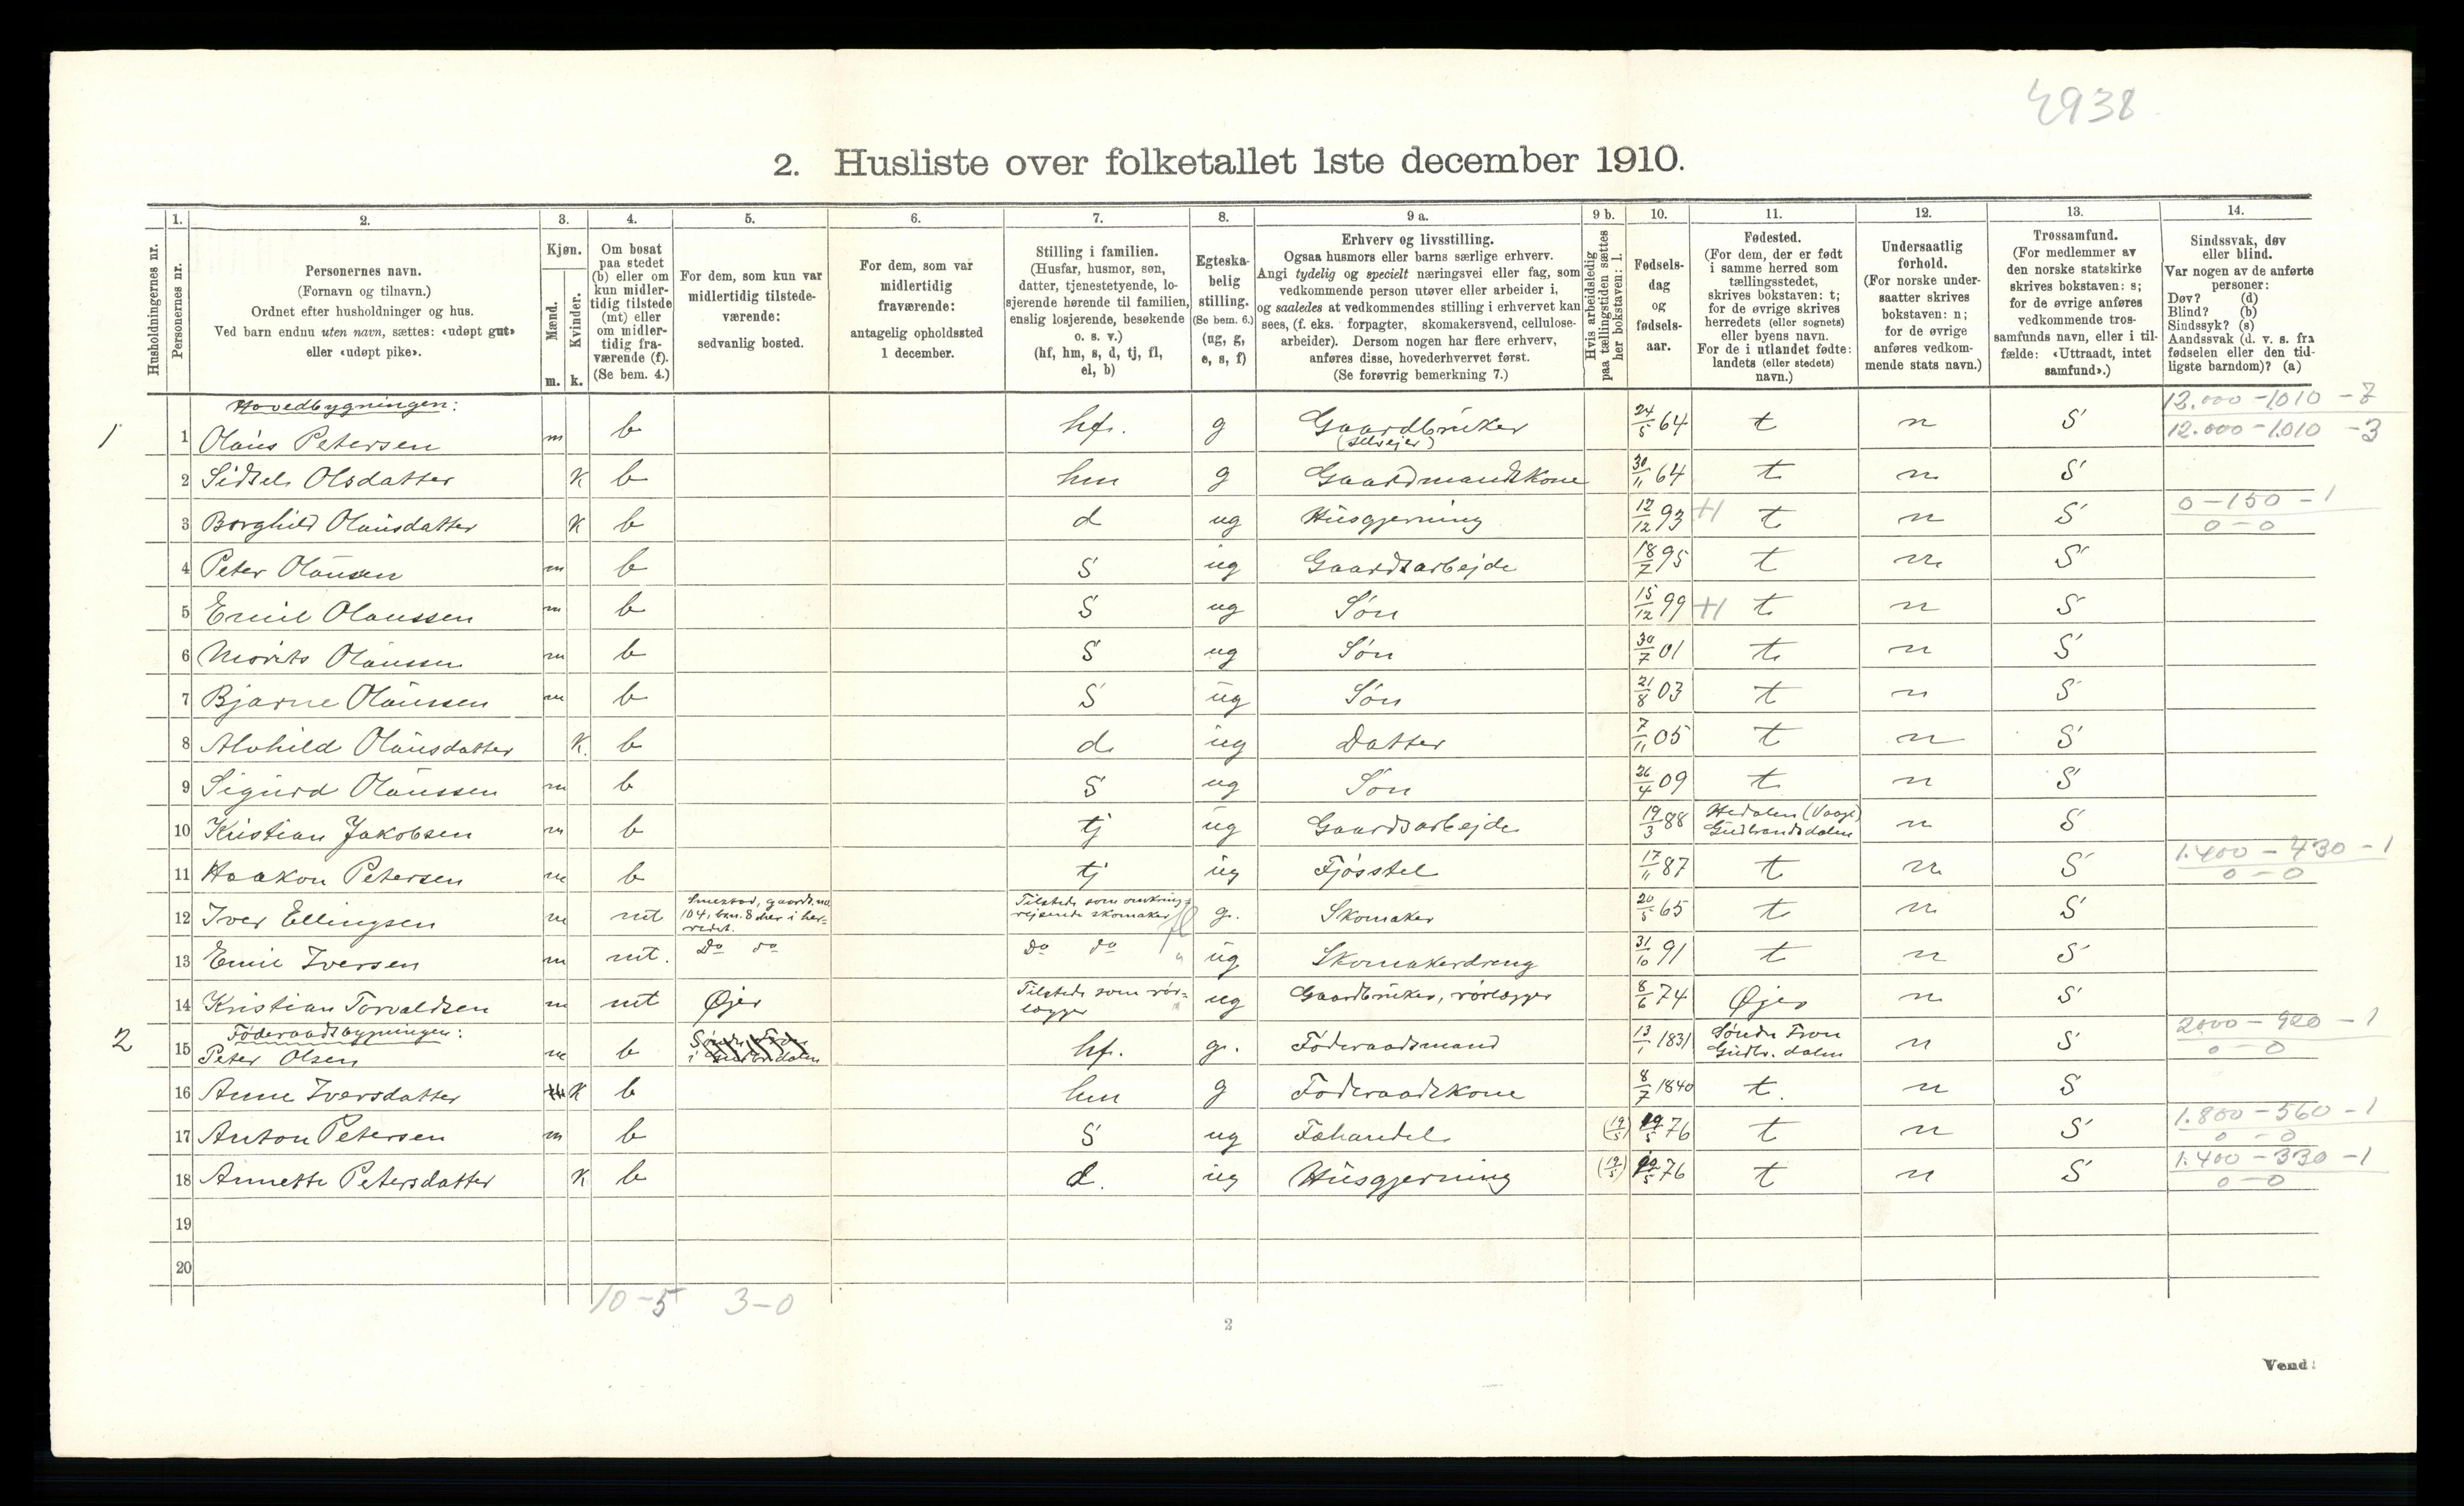 4938
2. Husliste over folketallet 1ste december 1910.
1. 2. 3. 4. 5. 6. 7. 8. 9 a. 9 b. 10. 11. 12. 13. 14.
Husholdningernes nr.
Personernes nr.
Personernes navn.
(Fornavn og tilnavn.)
Ordnet efter husholdninger og hus.
Ved barn endnu uten navn, sættes: «udøpt gut»
eller «udøpt pike».
Kjøn.
Mænd.
Kvinder.
m. k.
Om bosat
paa stedet
(b) eller om
kun midler-
tidig tilstede
(mt) eller
om midler-
tidig fra-
værende (f).
(Se bem. 4.)
For dem, som kun var
midlertidig tilstede-
værende:
sedvanlig bosted.
For dem, som var
midlertidig
fraværende:
antagelig opholdssted
1 december.
Stilling i familien.
(Husfar, husmor, søn,
datter, tjenestetyende, lo-
sjerende hørende til familien,
enslig losjerende, besøkende
o. s. v.)
(hf, hm, s, d, tj, fl,
el, b)
Egteska-
belig
stilling.
(Se bem. 6.)
(ug, g,
e, s, f)
Erhverv og livsstilling.
Ogsaa husmors eller barns særlige erhverv.
Angi tydelig og specielt næringsvei eller fag, som
vedkommende person utøver eller arbeider i,
og saaledes at vedkommendes stilling i erhvervet kan
sees, (f. eks. forpagter, skomakersvend, cellulose-
arbeider). Dersom nogen har flere erhverv,
anføres disse, hovederhvervet først.
(Se forøvrig bemerkning 7.)
Hvis arbeidsledig
paa tællingstiden sættes
her bokstaven: l.
Fødsels-
dag
og
fødsels-
aar.
Fødested.
(For dem, der er født
i samme herred som
tællingsstedet,
skrives bokstaven: t;
for de øvrige skrives
herredets (eller sognets)
eller byens navn.
For de i utlandet fødte:
landets (eller stedets)
navn.)
Undersaatlig
forhold.
(For norske under-
saatter skrives
bokstaven: n;
for de øvrige
anføres vedkom-
mende stats navn.)
Trossamfund.
(For medlemmer av
den norske statskirke
skrives bokstaven: s;
for de øvrige anføres
vedkommende tros-
samfunds navn, eller i til-
fælde: «Uttraadt, intet
samfund».)
Sindssvak, døv
eller blind.
Var nogen av de anførte
personer:
Døv? (d)
Blind? (b)
Sindssyk? (s)
Aandssvak (d. v. s. fra
fødselen eller den tid-
ligste barndom)? (a)
Hovedbygningen: 12.000 - 1010 - 3
1 1 Olaus Petersen m b hf. g Gaardbruker (selvejer) 24/5 64 t n S 12.000 - 1.010 - 3
2 Sidsel Olsdatter K b hm g Gaardmandskone 30/11 64 t n S
3 Borghild Olausdatter K b d ug Husgjerning 12/12 93 +1 t n S 0 - 150 - 1
0 - 0
4 Peter Olausen m b S ug Gaardsarbejde 18/7 95 t n S
5 Emil Olaussen m b S ug Søn 15/12 99 +1 t n S
6 Morits Olaussen m b S ug Søn 30/7 01 t n S
7 Bjarne Olaussen m b S ug Søn 21/8 03 t n S
8 Alvhild Olausdatter K. b d ug Datter 7/11 05 t n S
9 Sigurd Olaussen m b S ug Søn 26/4 09 t n S
10 Kristian Jakobsen m b tj ug Gaardsarbejde 19/3 88 Hedalen (Vaage) Gudbrandsdalen n S
11 Haakon Petersen m b tj ug Fjøsstel 17/11 87 t n S 1.400 - 430 - 1
0 - 0
12 Iver Ellingsen m mt Smestad, gaards.no. 104, brn. 8 her i her- redet. Tilstede som omkring- rejsende skomaker fl g. Skomaker 20/5 65 t n S
13 Emil Iversen m mt. Do do Do do " ug Skomakerdreng 31/10 91 t n S
14 Kristian Torvaldsen m mt Øjer Tilstede som rør- lægger ug Gaardbruker, rørlægger 8/6 74 Øjer n S
Føderaadsbygningen: 2000 - 920 - 1
2 15 Peter Olsen m b Søndre Fron i Gudbr.dalen hf. g. Føderaadsmand 13/1 1831 Søndre Fron Gudbr. dalen n S 0 - 0
16 Anne Iversdatter K b hm g Føderaadskone 8/7 1840 t. n S
17 Anton Petersen m b S ug Fæhandel (19/5) 19/5 76 t n S 1.800 - 560 - 1
0 - 0
18 Annette Petersdatter K b d. ug Husgjerning (19/5) 19/5 76 t n S 1.400 - 330 - 1
0 - 0
19
20
10 - 5 3 - 0
2
Vend!